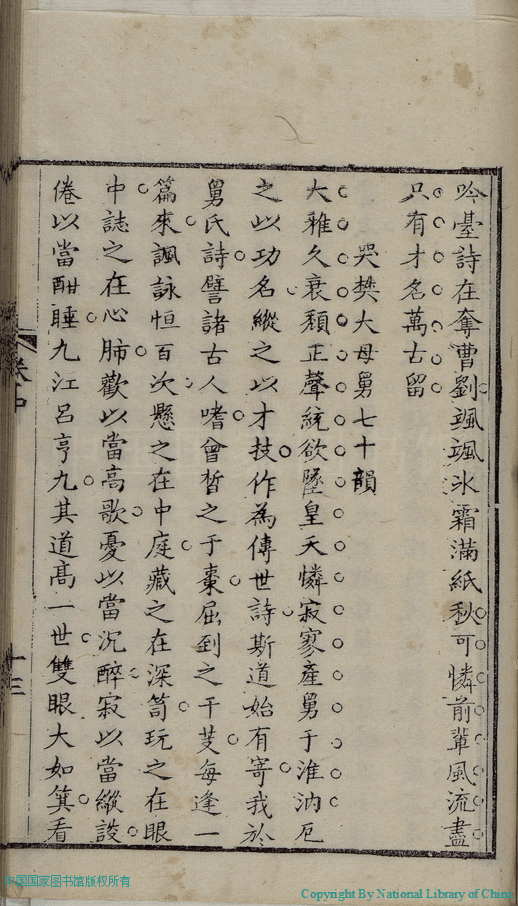 吟臺詩在奪曹劉颯颯冰霜滿紙秋可憐前輩風流盡
只有才名萬古留
哭樊大母舅七十韻
大雅久衰頹正聲統欲墜皇天憐寂寥產舅于淮汭厄
之以功名縱之以才技作為傳世詩斯道始有寄我於
舅氏詩譬諸古人嗜曾晳之于棗屈到之于芰每逢一
篇來諷詠恒百次懸之在中庭藏之在深笥玩之在眼
中誌之在心肺歡以當高歌憂以當沉醉寂以當縱談
倦以當酣睡九江呂亨九其道高一世雙眼大如箕看
卷中
十三
中国国家图书馆版权所有
Copyright By National Library of China